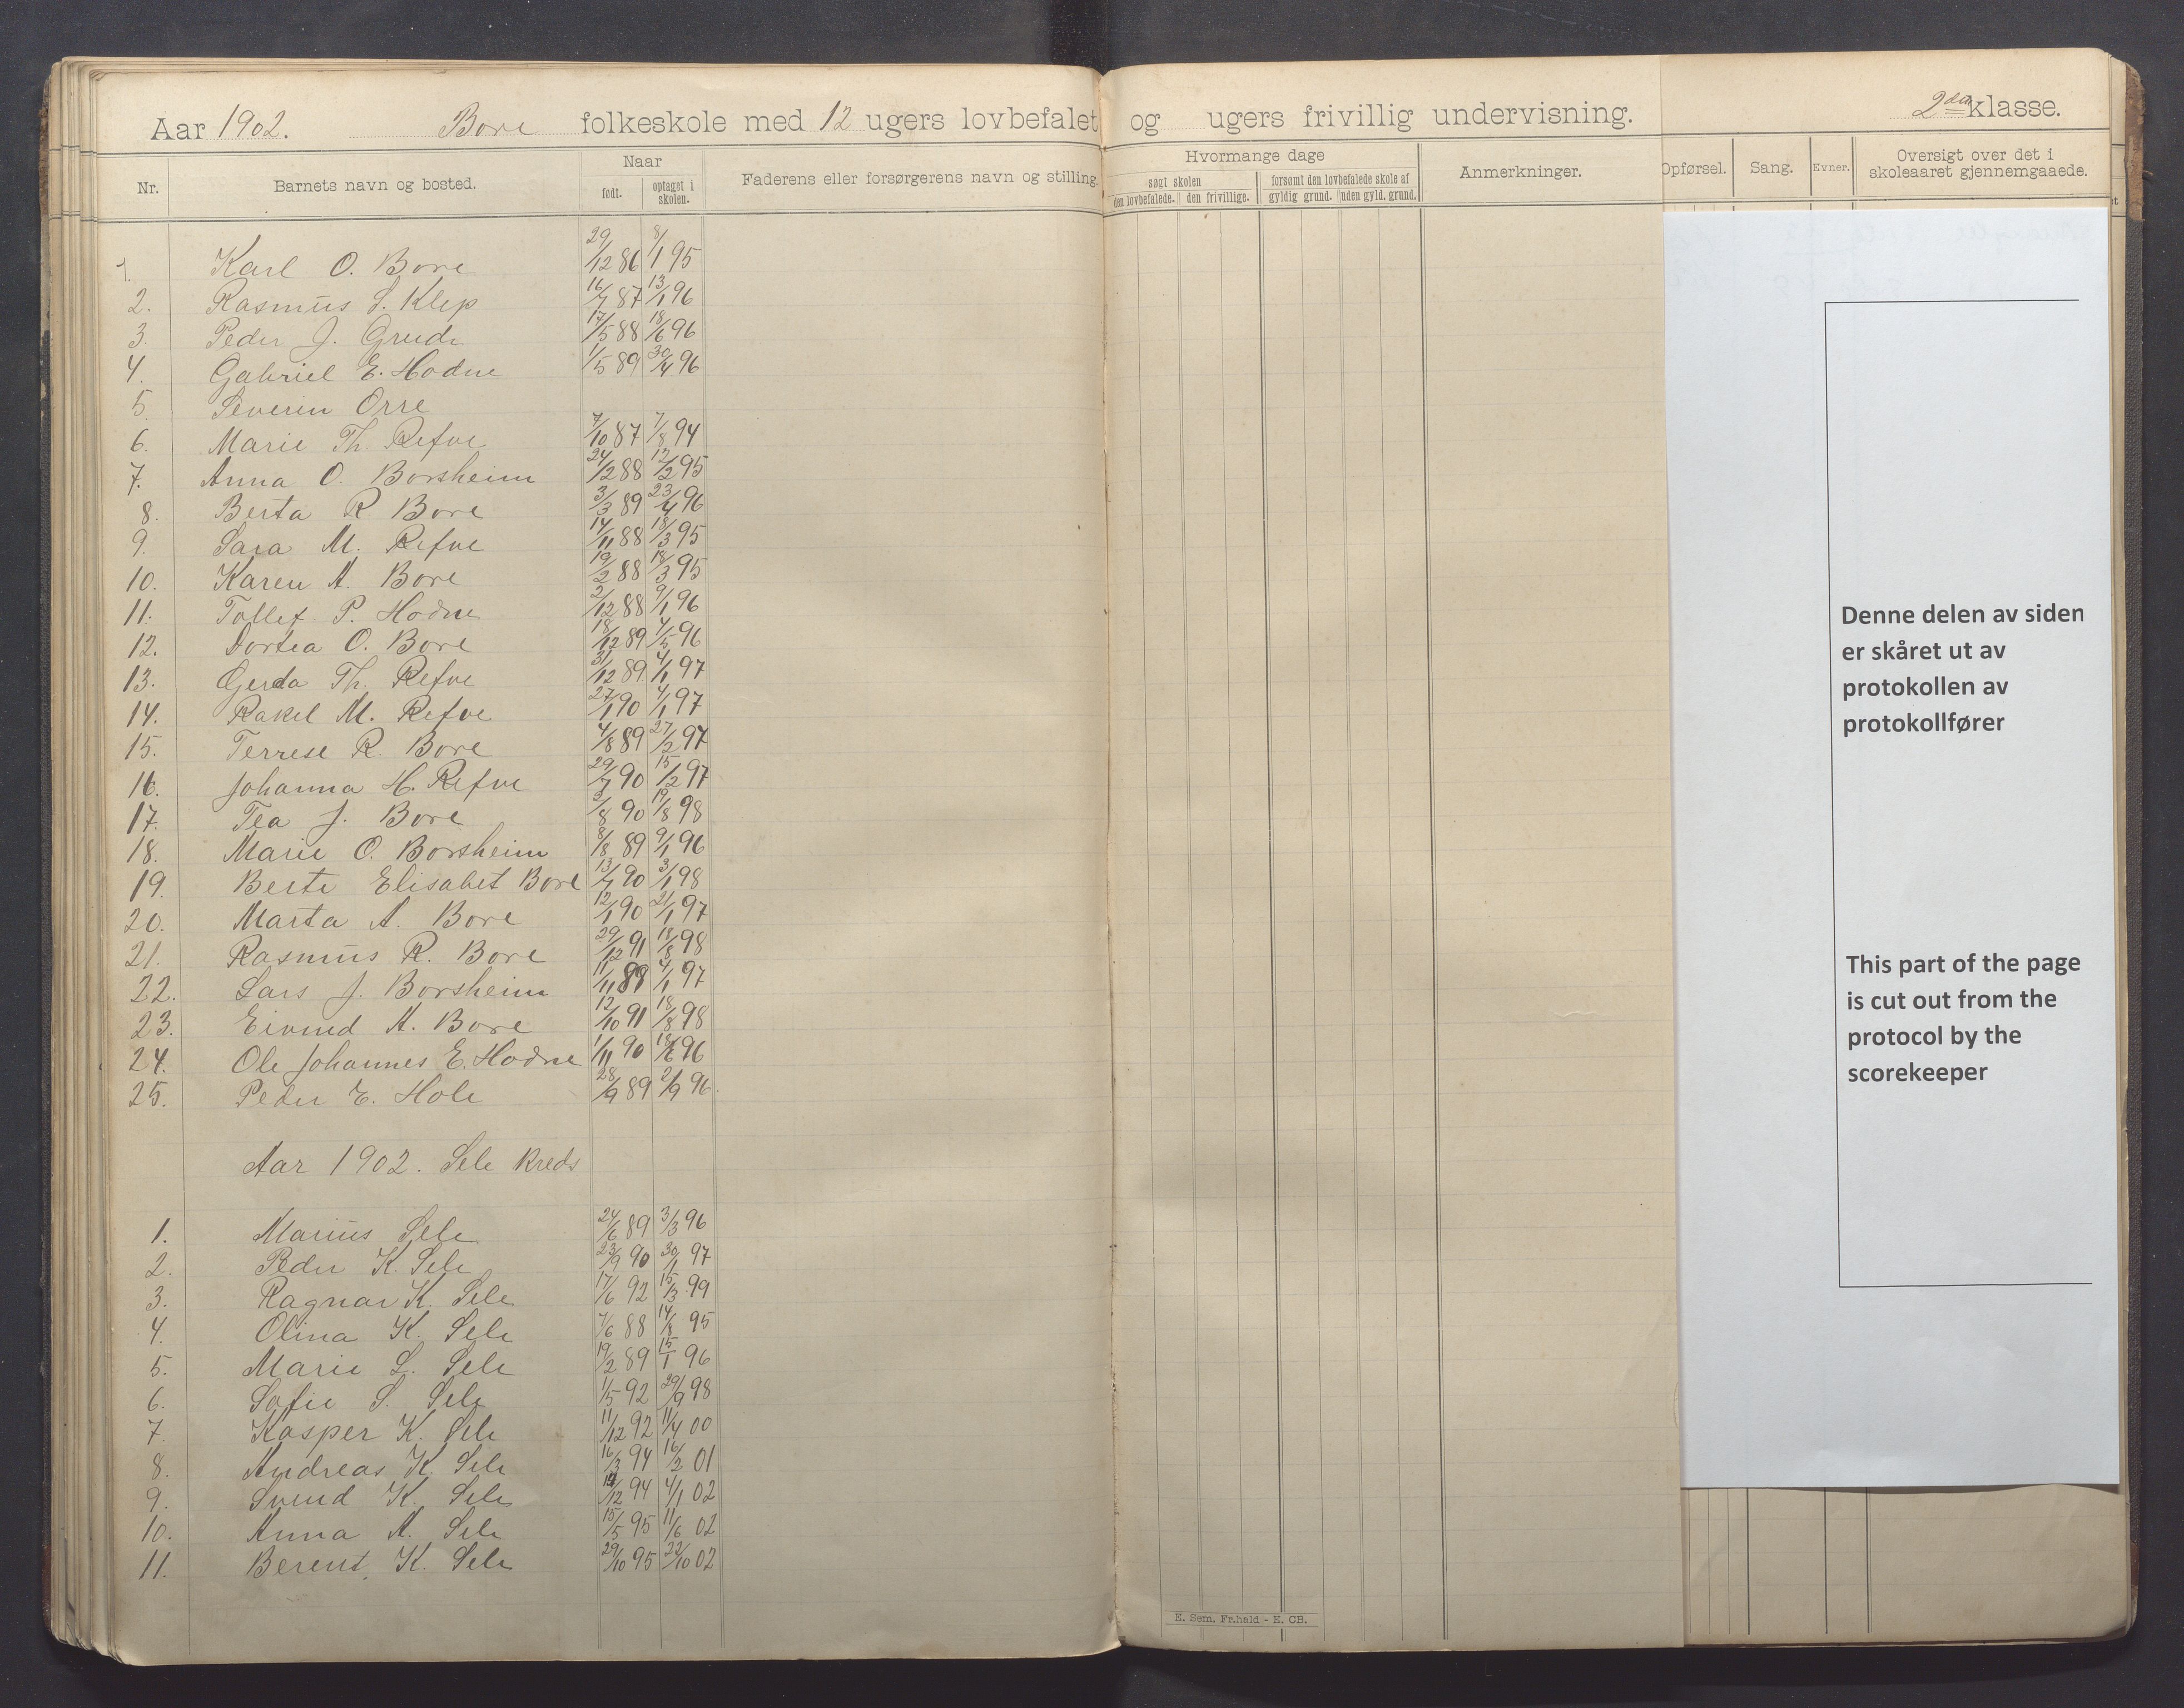 Aar 1902. Bore folkeskole med 12 ugers lovbefalet og ugers frivillig undervisning. 2den klasse.
Nr. Barnets navn og bosted. Naar født. optaget i skolen. Faderens eller forsørgerens navn og stilling. Hvormange dage søgt skolen den lovbefalede. den frivillige. forsømt den lovbefalede skole af gyldig grund. uden gyld. grund. Anmerkninger. Opførsel. Sang. Evner. Oversigt over det i skoleaaret gjennemgaaede.
1. Karl O. Bore 29/12 86 8/1 95
2. Rasmus S. Klep 16/7 87 13/1 96
3. Peder J. Grude 17/5 88 18/6 96
4. Gabriel E. Hodne 1/5 89 30/4 96
5. Severin Orre
6. Marie Th. Refve 7/10 87 7/8 94
7. Anna O. Borsheim 24/12 88 12/2 95
8. Berta R. Bore 3/3 89 23/4 96
9. Sara M. Refve 14/11 88 18/3 95
10. Karen A. Bore 19/2 88 18/3 95
11. Tollef P. Hodne 2/12 88 9/1 96
12. Dortea O. Bore 18/12 89 4/5 96
13. Gerda Th. Refve 31/12 89 4/1 97
14. Rakel M. Refve 27/1 90 4/1 97
15. Terrese R. Bore 4/8 89 27/2 97
16. Johanna H. Refve 29/7 90 15/12 97
17. Tea J. Bore 2/8 90 19/8 98
18. Marie O. Borsheim 8/8 89 9/1 96
19. Berte Elisabet Bore 13/7 90 3/1 98
20. Marta A. Bore 12/1 90 21/1 97
21. Rasmus R. Bore 29/12 91 18/8 98
22. Lars J. Borsheim 11/11 89 4/1 97
23. Eivind A. Bore 12/10 91 18/8 98
24. Ole Johannes E. Hodne 1/11 90 18/6 96
25. Peder E. Hole 28/9 89 2/9 96
Aar 1902. Sele Kreds
1. Marius Sele 24/6 89 3/3 96
2. Peder K. Sele 23/9 90 30/1 97
3. Ragnar K. Sele 17/6 92 15/3 99
4. Olina K. Sele 7/6 88 14/8 95
5. Marie L. Sele 19/2 89 15/1 96
6. Sofie S. Sele 1/5 92 29/9 98
7. Kasper K. Sele 11/12 92 11/4 00
8. Andreas K. Sele 16/3 94 16/2 01
9. Svend K. Sele /12 94 4/1 02
10. Anna A. Sele 15/5 95 11/6 02
11. Berent K. Sele 29/10 95 22/10 02
E. Sem. Fr.hald - E. CB.
Denne delen av siden
er skåret ut av
protokollen av
protokollfører
This part of the page
is cut out from the
protocol by the
scorekeeper